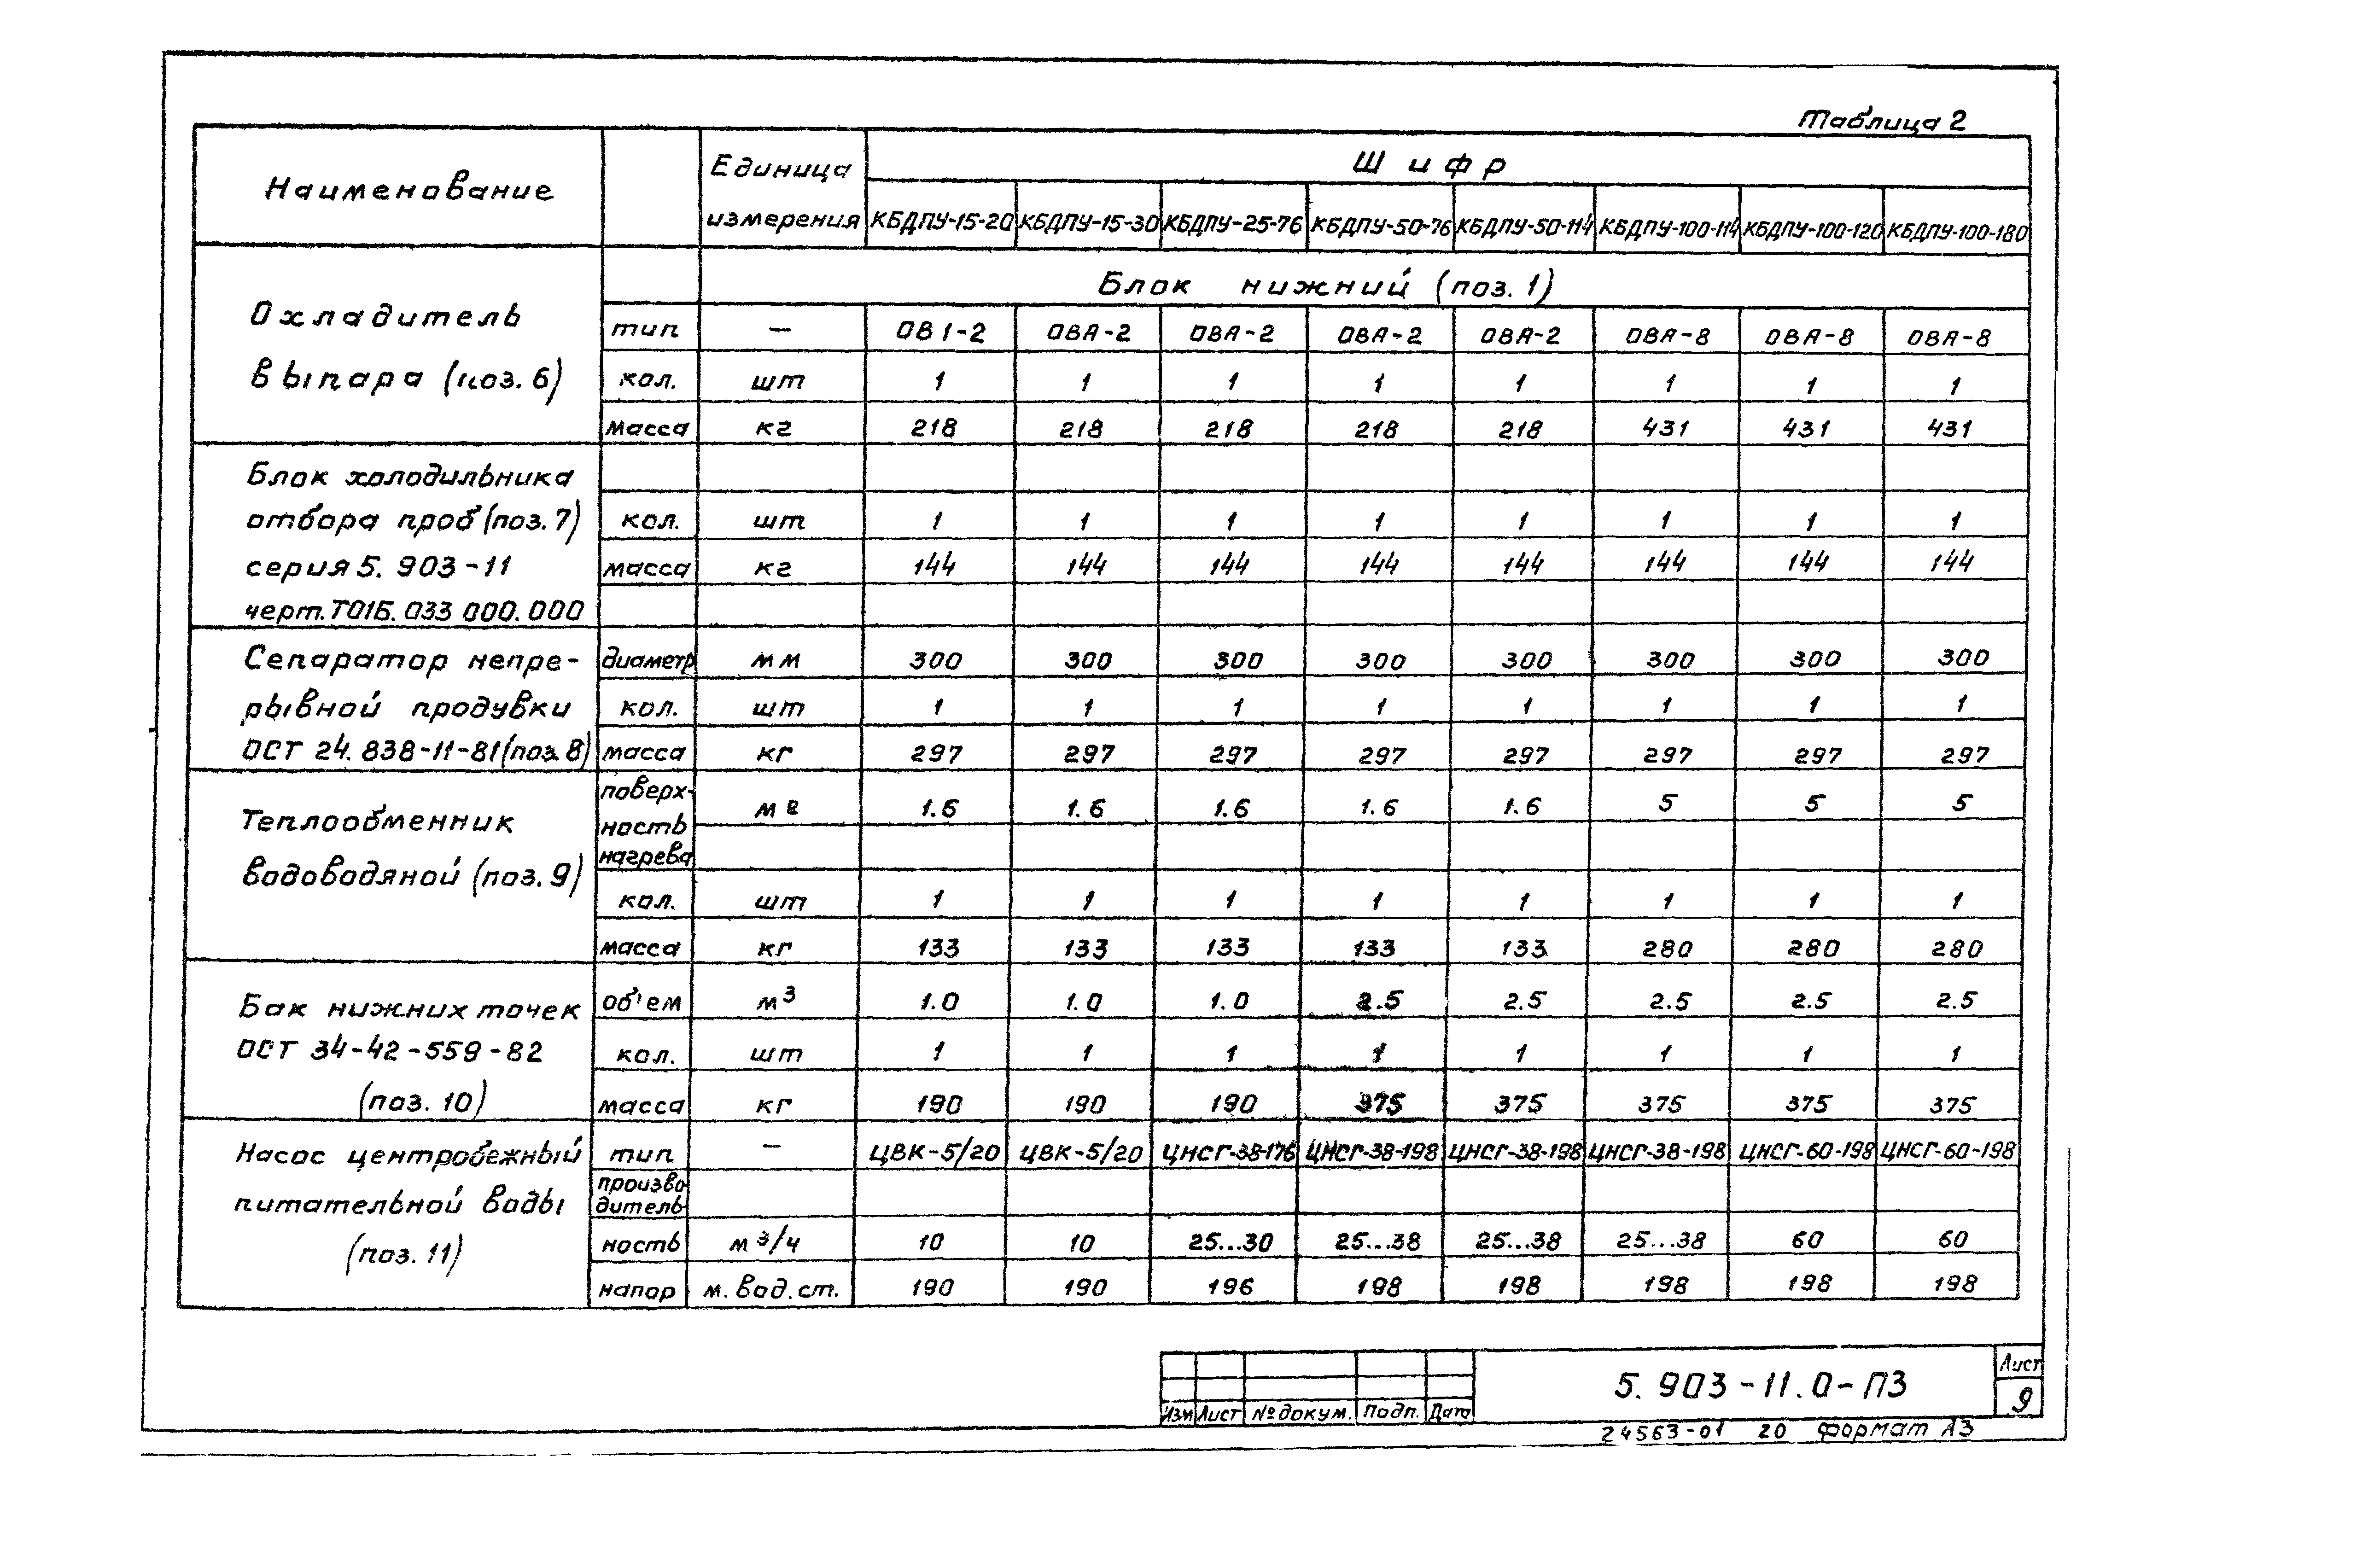 Таблица 2
Наименование
Единица измерения
Шифр
КБДПУ-15-20 КБДПУ-15-30 КБДПУ-25-76 КБДПУ-50-76 КБДПУ-50-114 КБДПУ-100-114 КБДПУ-100-120 КБДПУ-100-180
Блок нижний (поз. 1)
Охладитель
выпара (поз. 6)
тип — ОВ1-2 ОВА-2 ОВА-2 ОВА-2 ОВА-2 ОВА-8 ОВА-8 ОВА-8
кол. шт 1 1 1 1 1 1 1 1
масса кг 218 218 218 218 218 431 431 431
Блок холодильника
отбора проб (поз. 7)
серия 5. 903-11
черт. Т01Б. 033 000. 000
кол. шт 1 1 1 1 1 1 1 1
масса кг 144 144 144 144 144 144 144 144
Сепаратор непре-
рывной продувки
ОСТ 24. 838-11-81 (поз. 8)
диаметр мм 300 300 300 300 300 300 300 300
кол. шт 1 1 1 1 1 1 1 1
масса кг 297 297 297 297 297 297 297 297
Теплообменник
водоводяной (поз. 9)
поверх-
ность
нагрева
м² 1.6 1.6 1.6 1.6 1.6 5 5 5
кол. шт 1 1 1 1 1 1 1 1
масса кг 133 133 133 133 133 280 280 280
Бак нижних точек
ОСТ 34-42-559-82
(поз. 10)
об'ем м³ 1.0 1.0 1.0 2.5 2.5 2.5 2.5 2.5
кол. шт 1 1 1 1 1 1 1 1
масса кг 190 190 190 375 375 375 375 375
Насос центробежный
питательной воды
(поз. 11)
тип — ЦВК-5/20 ЦВК-5/20 ЦНСГ-38-176 ЦНСГ-38-198 ЦНСГ-38-198 ЦНСГ-38-198 ЦНСГ-60-198 ЦНСГ-60-198
произво
дитель-
ность м³/ч 10 10 25...30 25...38 25...38 25...38 60 60
напор м. вод. ст. 190 190 196 198 198 198 198 198
Изм Лист № докум. Подп. Дата
5. 903-11.0-ПЗ
Лист
9
24563-01 20 Формат А3